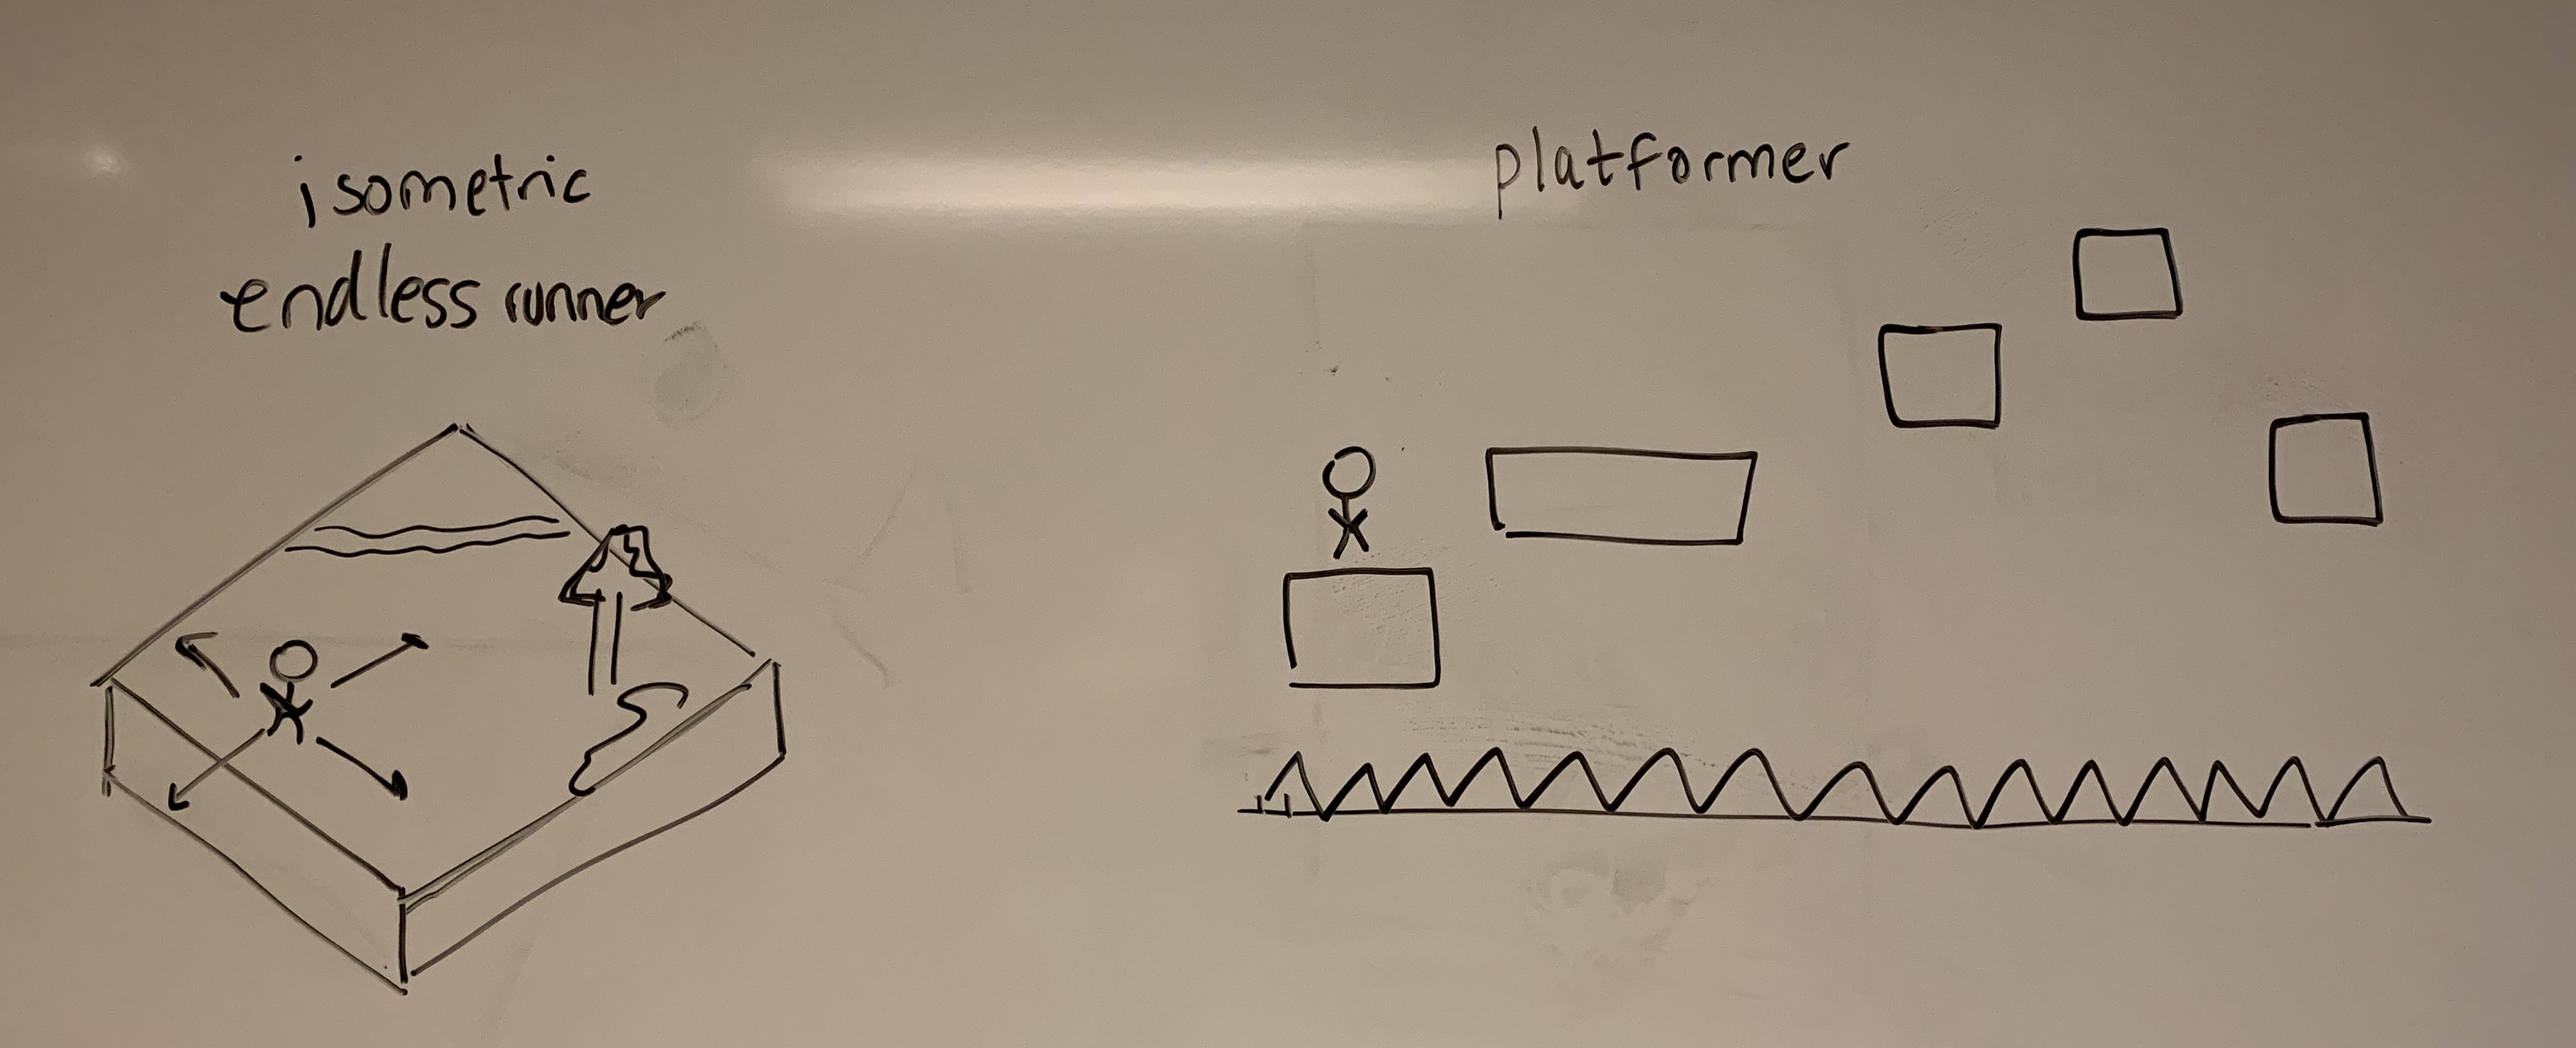 isometric
endless runner
platformer